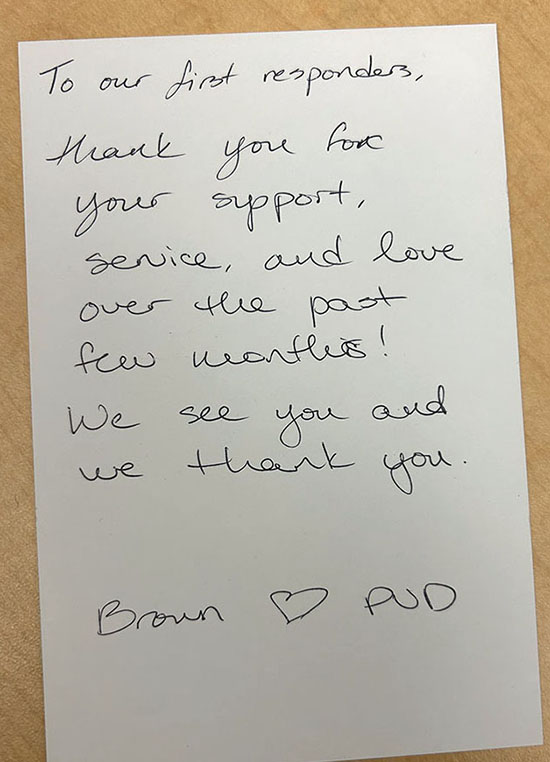 To our first responders,
thank you for
your support,
service, and love
over the past
few months!
We see you and
we thank you.
Brown ♡ PVD